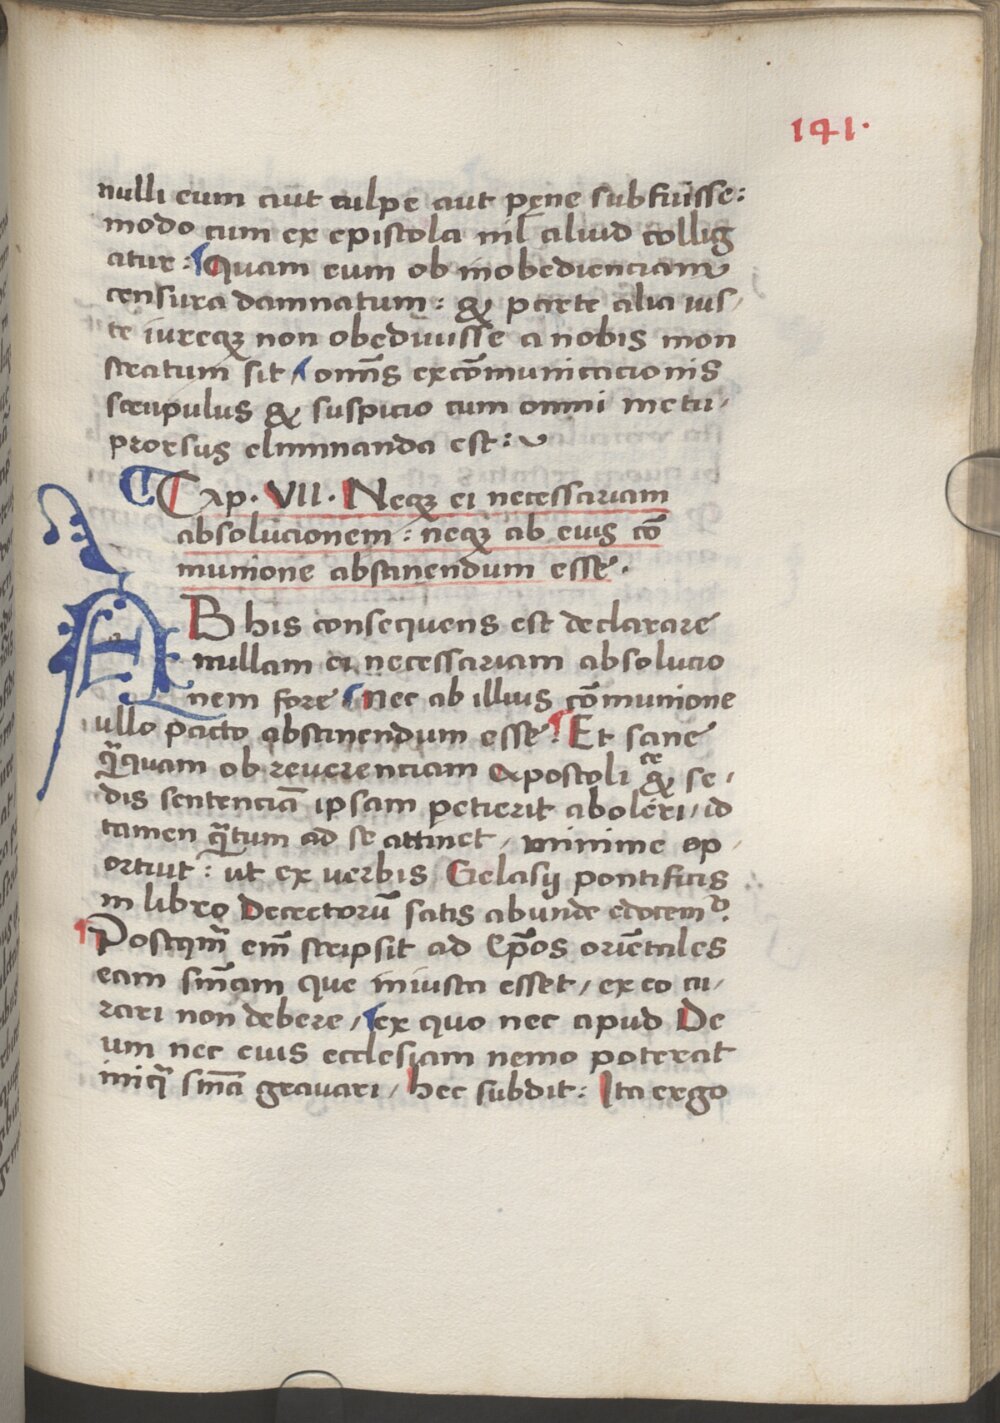 141.
nulli eum aut culpe aut pęne subfuisse:
modo cum ex epistola nil̄ aliud collig
atur: Quam eum ob inobedienciam
censura damnatum: & parte alia ius/
te iureqꝫ non obedivisse a nobis mon
stratum sit / omn̄s excōmunicacionis
scrupulus & suspicio cum omni metu /
prorsus eliminanda est:
Cap. VII. Neqꝫ ei necessariam
absolucionem: neqꝫ ab eius cō
munione abstinendum esse.
AB his consequens est declarare
nullam ei necessariam absolucio
nem fore / nec ab illius cōmunione
ullo pacto abstinendum esse. Et sane
qᷓquam ob reverenciam apostolice & se /
dis sentenciā ipsam petierit aboleri / id
tamen qᷓtum ad se attinet / minime op /
ortuit: ut ex verbis Gelasij pontificis
in libro Decretorū satis abunde edocemꝰ.
Postqm̄ em̄ scripsit ad Ep̄os oriētales
eam sn̄iam que iniusta esset / ex eo cu /
rari non debere / ex quo nec apud De
um nec eius ecclesiam nemo poterat
iniqᷓ sn̄ia gravari / hec subdit: Ita ergo